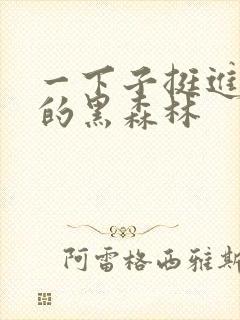 一下子挺进
的黑森林
阿雷格西雅斯